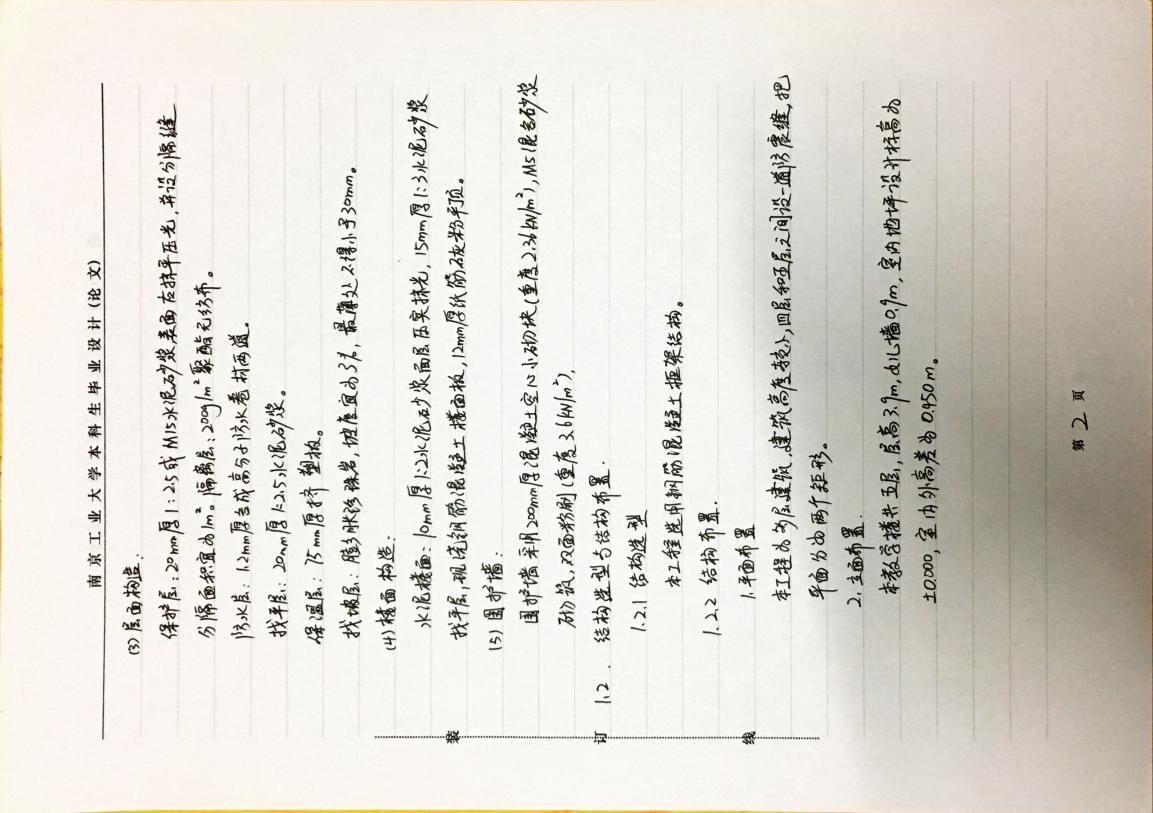 南京工业大学本科生毕业设计(论文)
(3)屋面构造：
保护层：20mm厚1:2.5或M15水泥砂浆表面应抹平压光，并设分隔缝
分隔面积宜为1m²。隔离层：200g/m²聚酯无纺布。
防水层：1.2mm厚合成高分子防水卷材两道。
找平层：20mm厚1:2.5水泥砂浆。
保温层：75mm厚挤塑板。
找坡层：膨胀珍珠岩，坡度宜为3%，最薄处不得小于30mm。
(4)楼面构造：
水泥楼面：10mm厚1:2水泥砂浆面层压实抹光，15mm厚1:3水泥砂浆
找平层，现浇钢筋混凝土楼面板，12mm厚纸筋石灰粉平顶。
(5)围护墙：
围护墙采用200mm厚混凝土空心小砌块(重度2.36kN/m²)，M5混合砂浆
砌筑，双面粉刷(重度3.6kN/m²)，
1.2．结构选型与结构布置．
1.2.1 结构选型
本工程选用钢筋混凝土框架结构。
1.2.2 结构布置．
1.平面布置
本工程为多层建筑，建筑高度较小，四层和五层之间设一道防震缝，把
平面分为两个矩形。
2.立面布置．
本教学楼共五层，层高3.9m，女儿墙0.9m，室内地坪设计标高为
±0.000，室内外高差为0.450m。
装 订 线
第 2 页